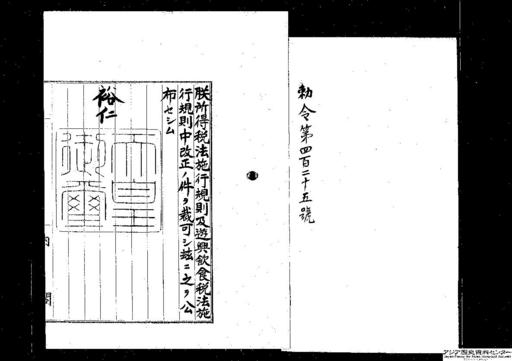 勅令第四百二十五號
朕所得税法施行規則及遊興飲食税法施
行規則中改正ノ件ヲ裁可シ玆ニ之ヲ公
布セシム
裕仁
天皇
御璽
内閣
アジア歴史資料センター